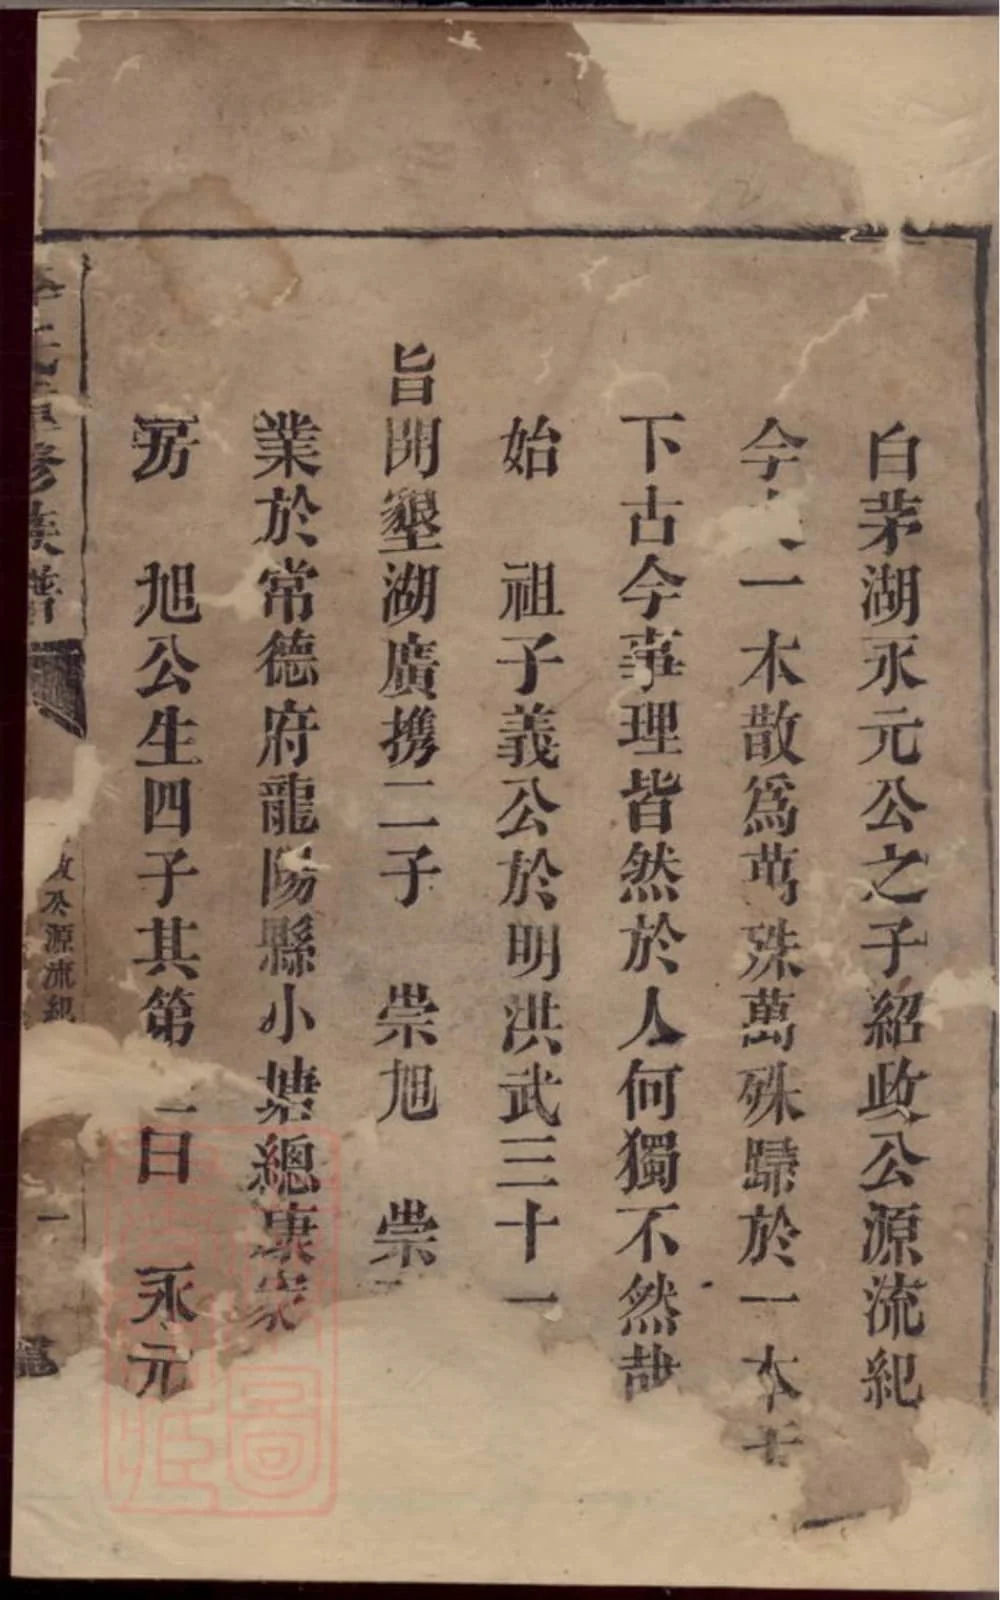 白茅湖永元公之子紹政公源流紀
今一本散爲萬殊萬殊歸於一本
下古今事理皆然於人何獨不然哉
始　祖子義公於明洪武三十一
旨開墾湖廣携二子　崇旭　崇
業於常德府龍陽縣小塘總康家
房　旭公生四子其第二曰　永元
氏重修族譜
政公源流紀
一